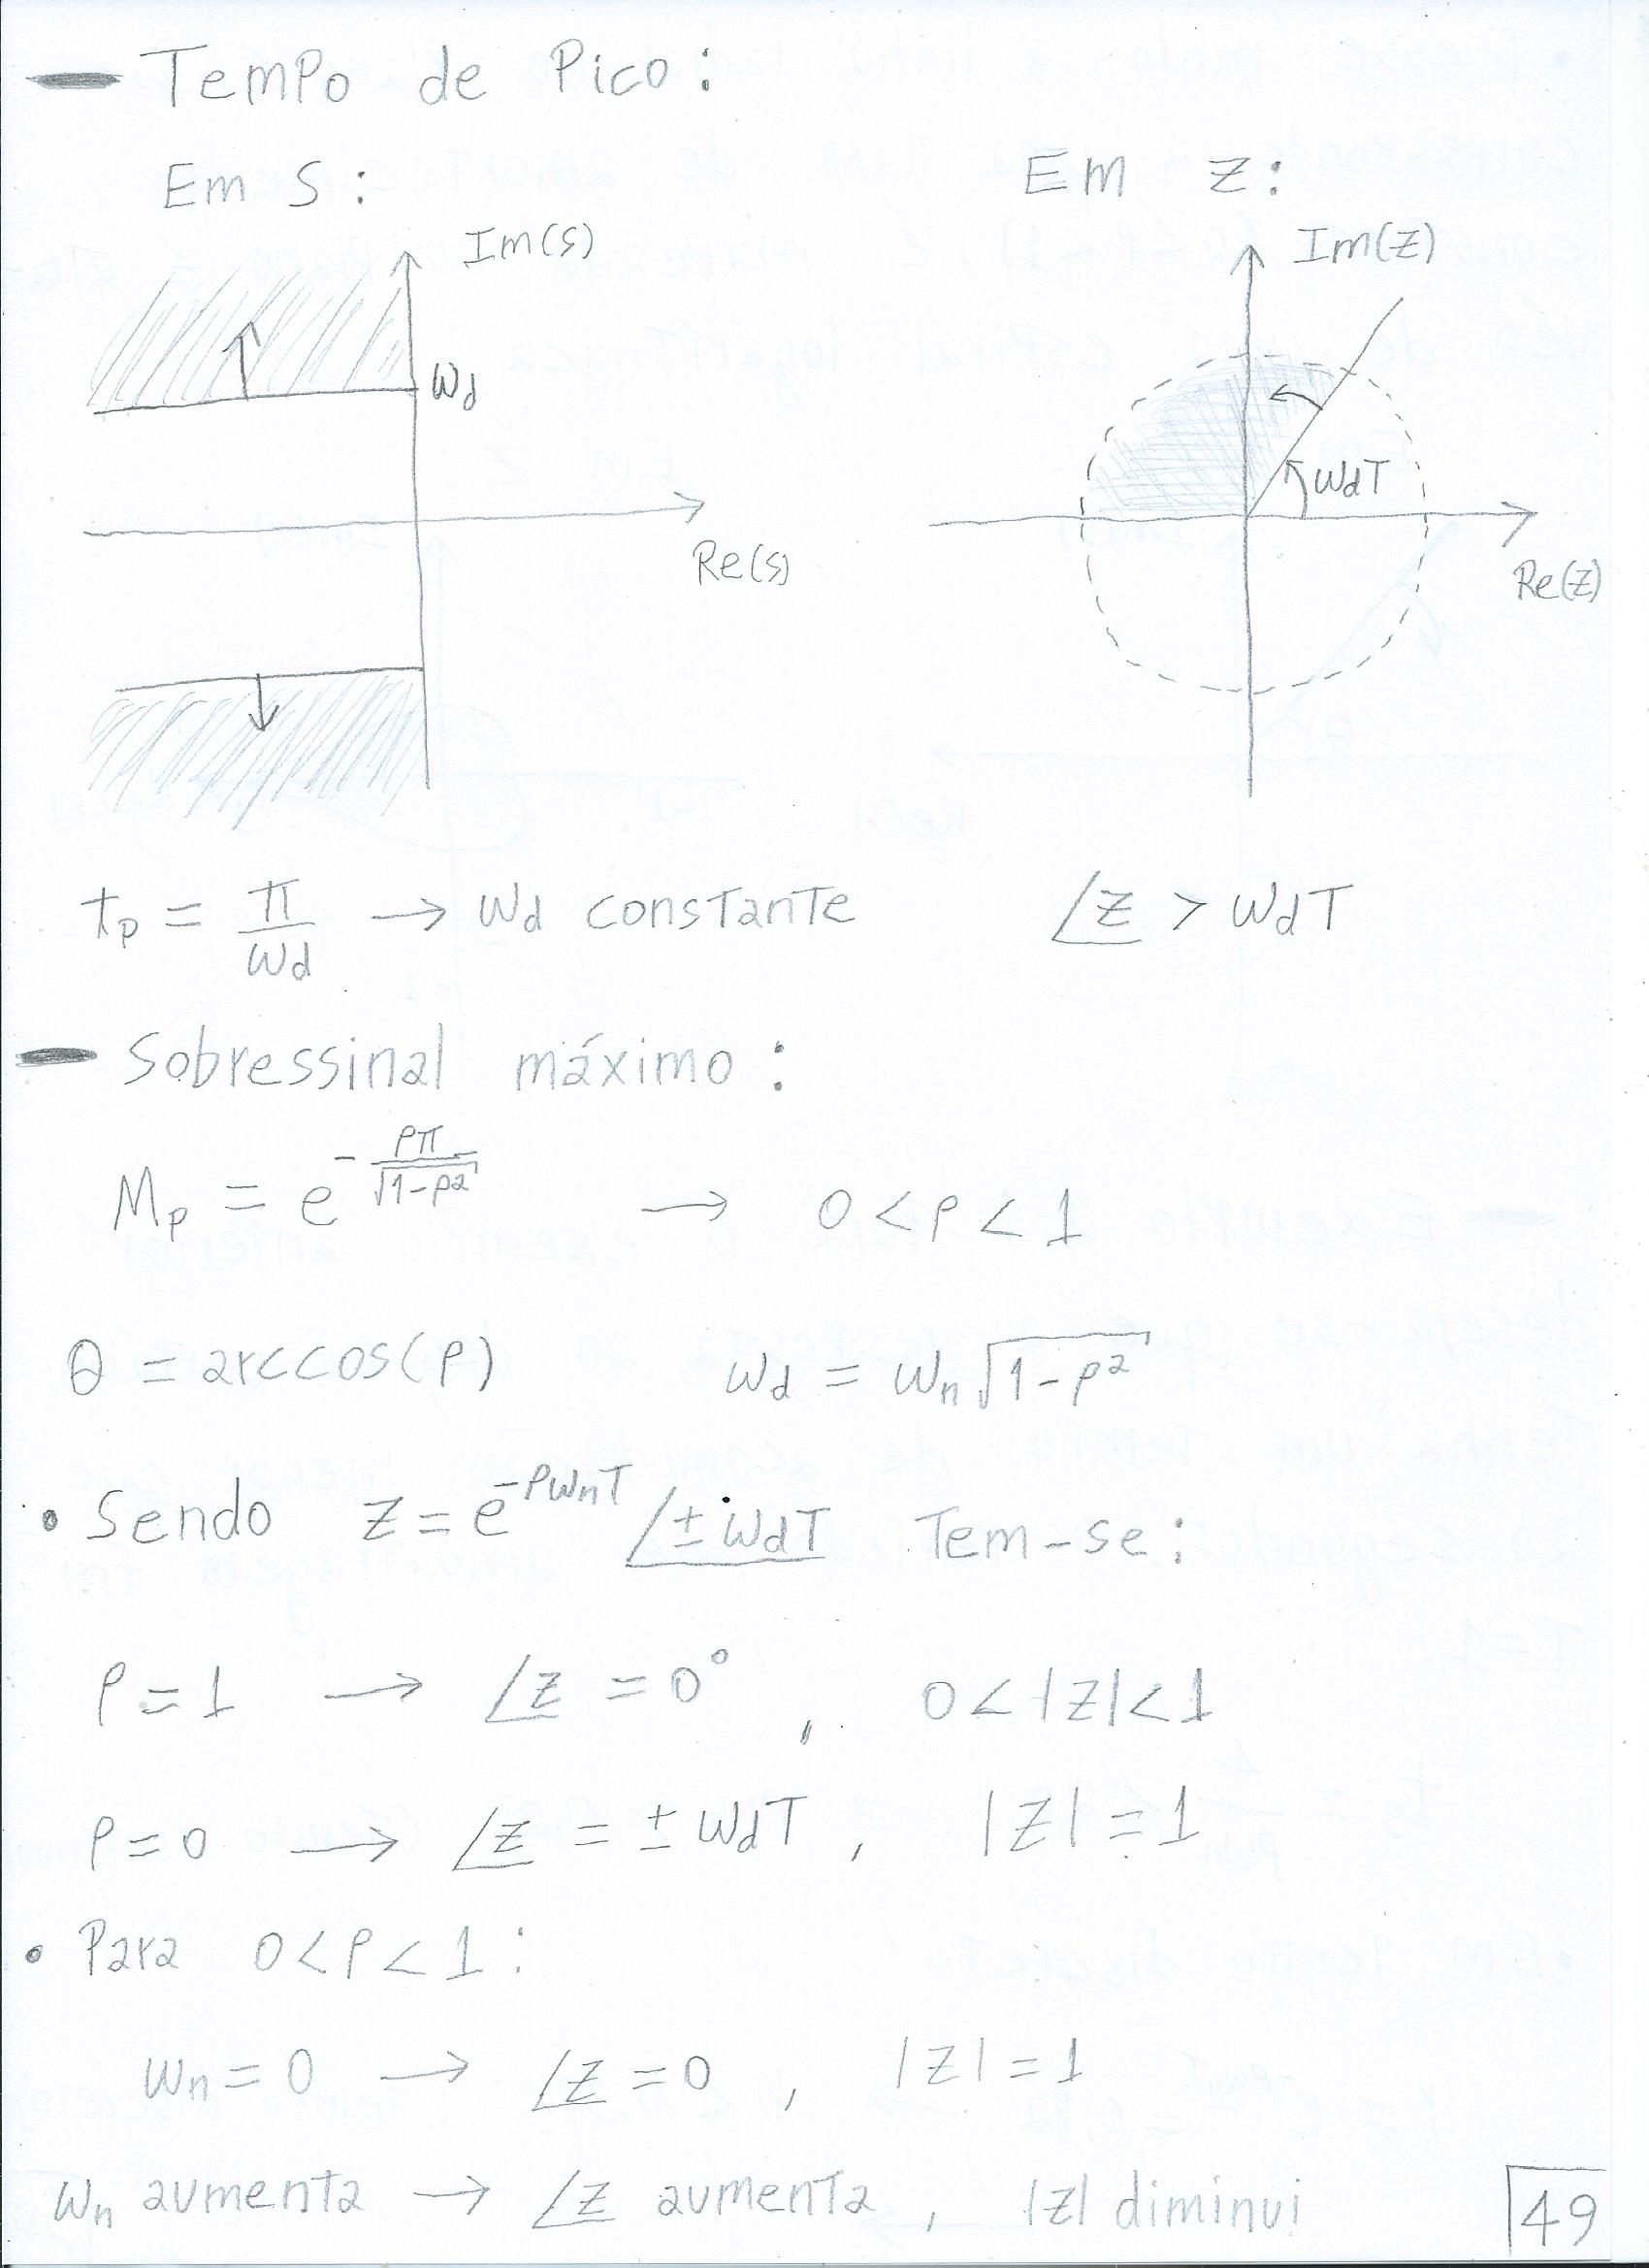 — Tempo de Pico:
Em S:
Em z:
Im(s)
Im(z)
ωd
ωdT
Re(s)
Re(z)
tp = π/ωd → ωd constante
∠z > ωdT
— Sobressinal máximo:
Mp = e^(-ρπ/√(1-ρ²)) → 0 < ρ < 1
θ = arccos(ρ) ωd = ωn√(1-ρ²)
• Sendo z = e^(-ρωnT) ∠±ωdT Tem-se:
ρ = 1 → ∠z = 0°, 0 < |z| < 1
ρ = 0 → ∠z = ±ωdT, |z| = 1
• Para 0 < ρ < 1:
ωn = 0 → ∠z = 0, |z| = 1
ωn aumenta → ∠z aumenta, |z| diminui
49